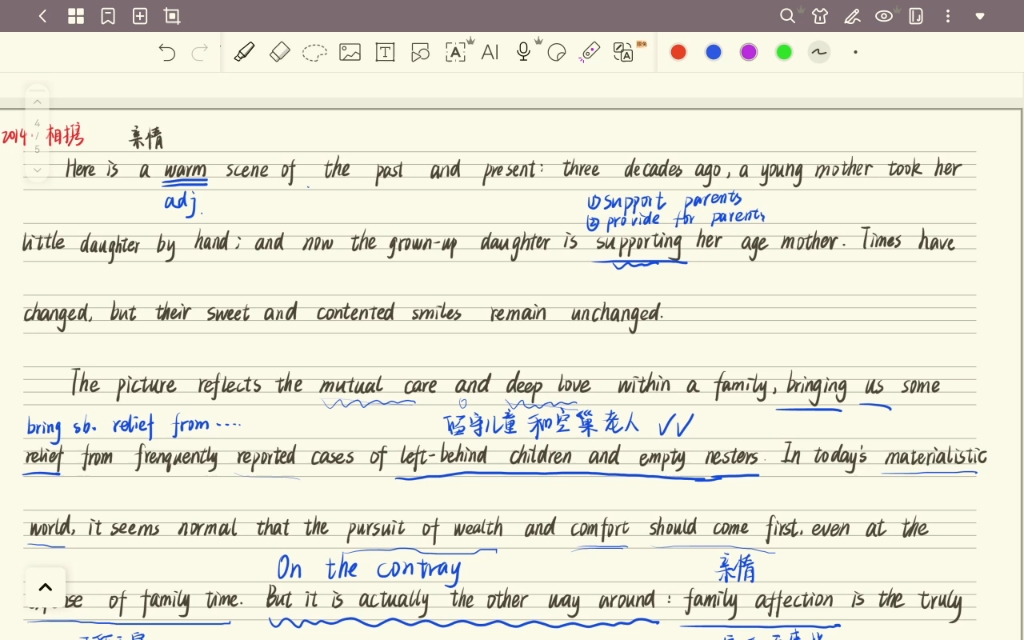 2014·相携 亲情
Here is a warm scene of the past and present: three decades ago, a young mother took her
adj.
①support parents
②provide for parents
little daughter by hand; and now the grown-up daughter is supporting her age mother. Times have
changed, but their sweet and contented smiles remain unchanged.
The picture reflects the mutual care and deep love within a family, bringing us some
bring sb. relief from····
留守儿童和空巢老人 ✓✓
relief from frenquently reported cases of left-behind children and empty nesters. In today's materialistic
world, it seems normal that the pursuit of wealth and comfort should come first, even at the
On the contray
亲情
of family time. But it is actually the other way around: family affection is the truly